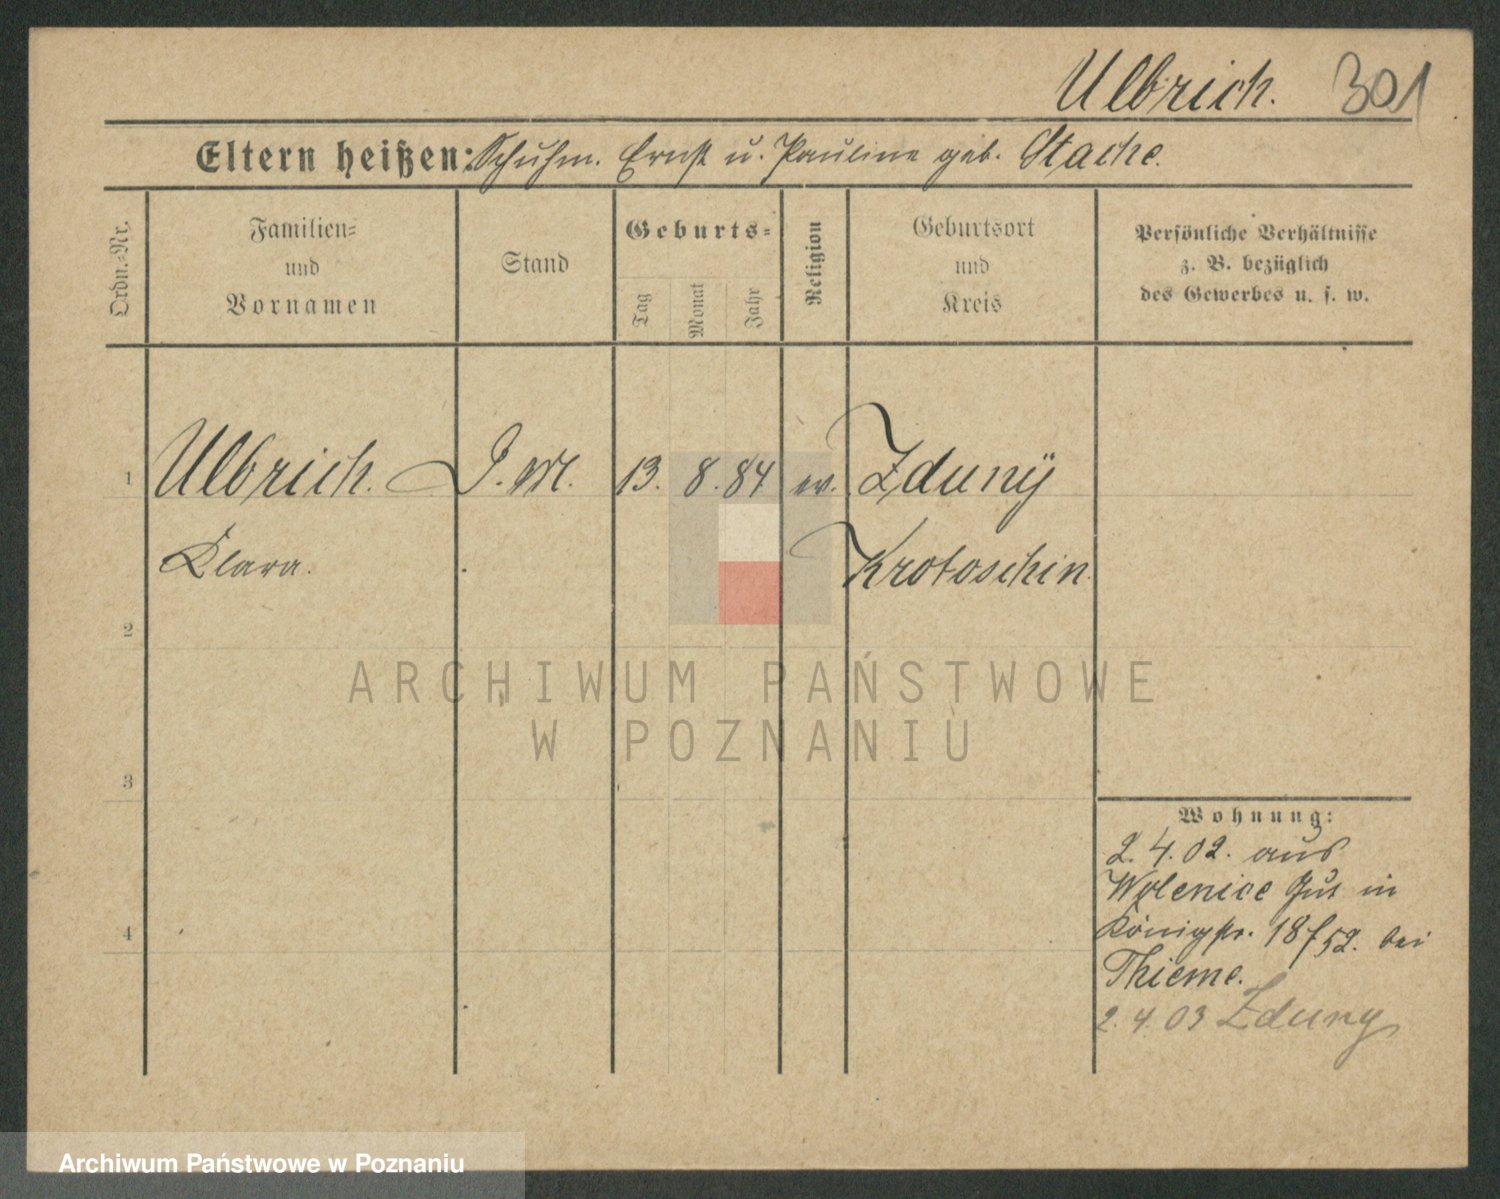 Ulbrich. 301
Eltern heißen: Schuhm. Ernst u. Pauline geb. Stache.
Ordn.-Nr.
Familien-
und
Vornamen
Stand
Geburts-
Tag
Monat
Jahr
Religion
Geburtsort
und
Kreis
Persönliche Verhältnisse
z. B. bezüglich
des Gewerbes u. s. w.
1 Ulbrich. D. M. 13. 8. 84 ev. Zduny
Klara. Krotoschin
2
ARCHIWUM PAŃSTWOWE
W POZNANIU
3
Wohnung:
2. 4. 02. aus
Wolenice Gut in
Königstr. 18/52. bei
4
Thieme.
2. 4. 03 Zduny
Archiwum Państwowe w Poznaniu